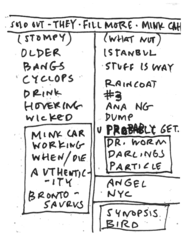 THEY · FILLMORE · MINK CAR
(STOMPY)
OLDER
BANGS
CYCLOPS
DRINK
HOVERING
WICKED
MINK CAR
WORKING
WHEN/DIE
AUTHENTIC-
-ITY
BRONTO-
SAURUS
(WHAT NOT)
ISTANBUL
STUFF IS WAY
RAINCOAT
#3
ANA NG
DUMP
U PROBABLY GET.
DR. WORM
DARLINGS
PARTICLE
ANGEL
NYC
SYNOPSIS
BIRD